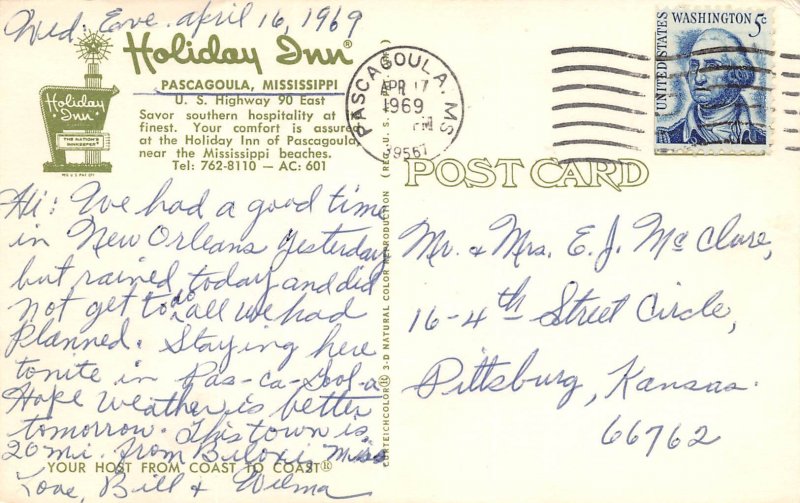 Wed. Eve. april 16, 1969
Holiday Inn®
PASCAGOULA, MISSISSIPPI
U. S. Highway 90 East
Savor southern hospitality at its
finest. Your comfort is assured
at the Holiday Inn of Pascagoula,
near the Mississippi beaches.
Tel: 762-8110 — AC: 601
Holiday Inn®
THE NATION'S
INNKEEPER
REG. U.S. PAT. OFF.
PASCAGOULA, MS
APR 17
PM
1969
39567
UNITED STATES
WASHINGTON 5c
POST CARD
Hi: We had a good time
in New Orleans yesterday
but rained today and did
not get to do all we had
planned. Staying here
tonite in Pas-ca-Gool-a
Hope weather is better
tomorrow. This town is
20 mi. from Biloxi, Miss
Love, Bill & Wilma
YOUR HOST FROM COAST TO COAST®
CURTEICHCOLOR® 3-D NATURAL COLOR REPRODUCTION (REG. U.S.
Mr. & Mrs. E. J. McClure,
16-4th Street Circle,
Pittsburg, Kansas.
66762